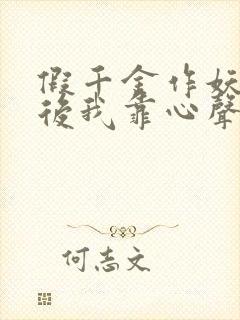 假千金作妖
後我靠心聲
何志文